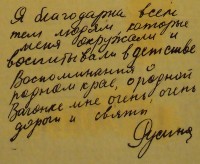 Я благодарна всем
тем людям которые
меня окружали и
воспитывали в детстве
Воспоминания о
родном крае, о родной
Вагонке мне очень, очень
дороги и святы
Русина